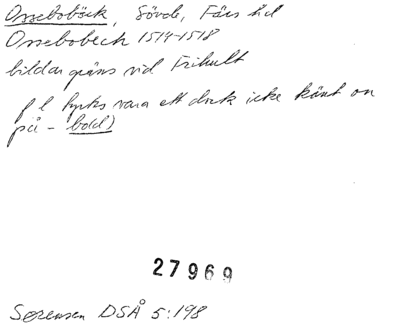 Osseboböck, Sövde, Färs hd
Ossebobeck 1514-1518
bildar gräns vid Frihult
f l tycks vara ett dock icke känt on
på - bold)
27969
Sørensen DSÅ 5:198